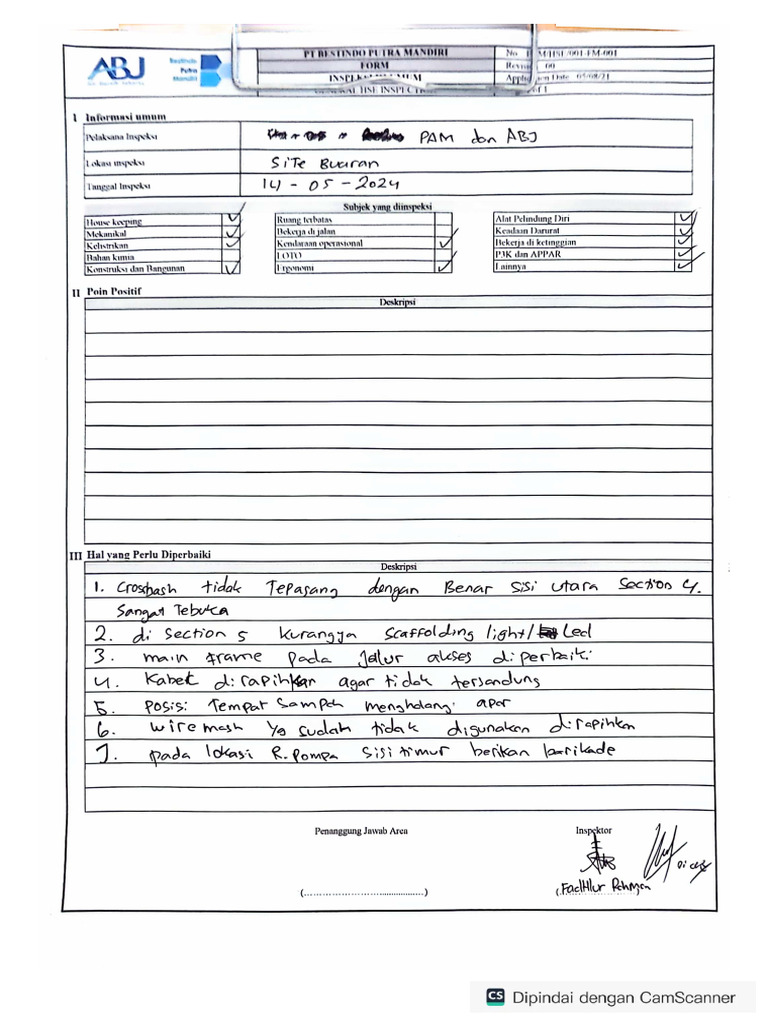 ABJ
Bestindo
Putra
Mandiri
PT BESTINDO PUTRA MANDIRI
FORM
INSPEKSI UMUM
GENERAL HSE INSPECTION
No
/HSE/001-FM-001
Revisi 00
Date 05/08/21
of 1
I Informasi umum
Pelaksana Inspeksi PAM dan ABJ
Lokasi inspeksi SiTe Buaran
Tanggal Inspeksi 14 - 05 - 2024
Subjek yang diinspeksi
House keeping ✓ Ruang terbatas Alat Pelindung Diri ✓
Mekanikal ✓ Bekerja di jalan Keadaan Darurat ✓
Kelistrikan ✓ Kendaraan operasional ✓ Bekerja di ketinggian ✓
Bahan kimia LOTO P3K dan APPAR ✓
Konstruksi dan Bangunan ✓ Ergonomi ✓ Lainnya ✓
II Poin Positif
Deskripsi
III Hal yang Perlu Diperbaiki
Deskripsi
1. tidak Tepasang dengan Benar sisi utara Section 4.
Sangat Tebuka
2. di Section 5 kurangya scaffolding light/ Led
3. main frame pada Jalur akses diperbaiki
4. Kabel dirapihkan agar tidak tersandung
5. posisi Tempat Sampah menghalangi apar
6. wiremash yg sudah tidak digunakan dirapihkan
7. pada lokasi R.pompa sisi timur berikan barikade
Penanggung Jawab Area Inspektor
(........................................) (.Fadhlur Rahman
CS Dipindai dengan CamScanner